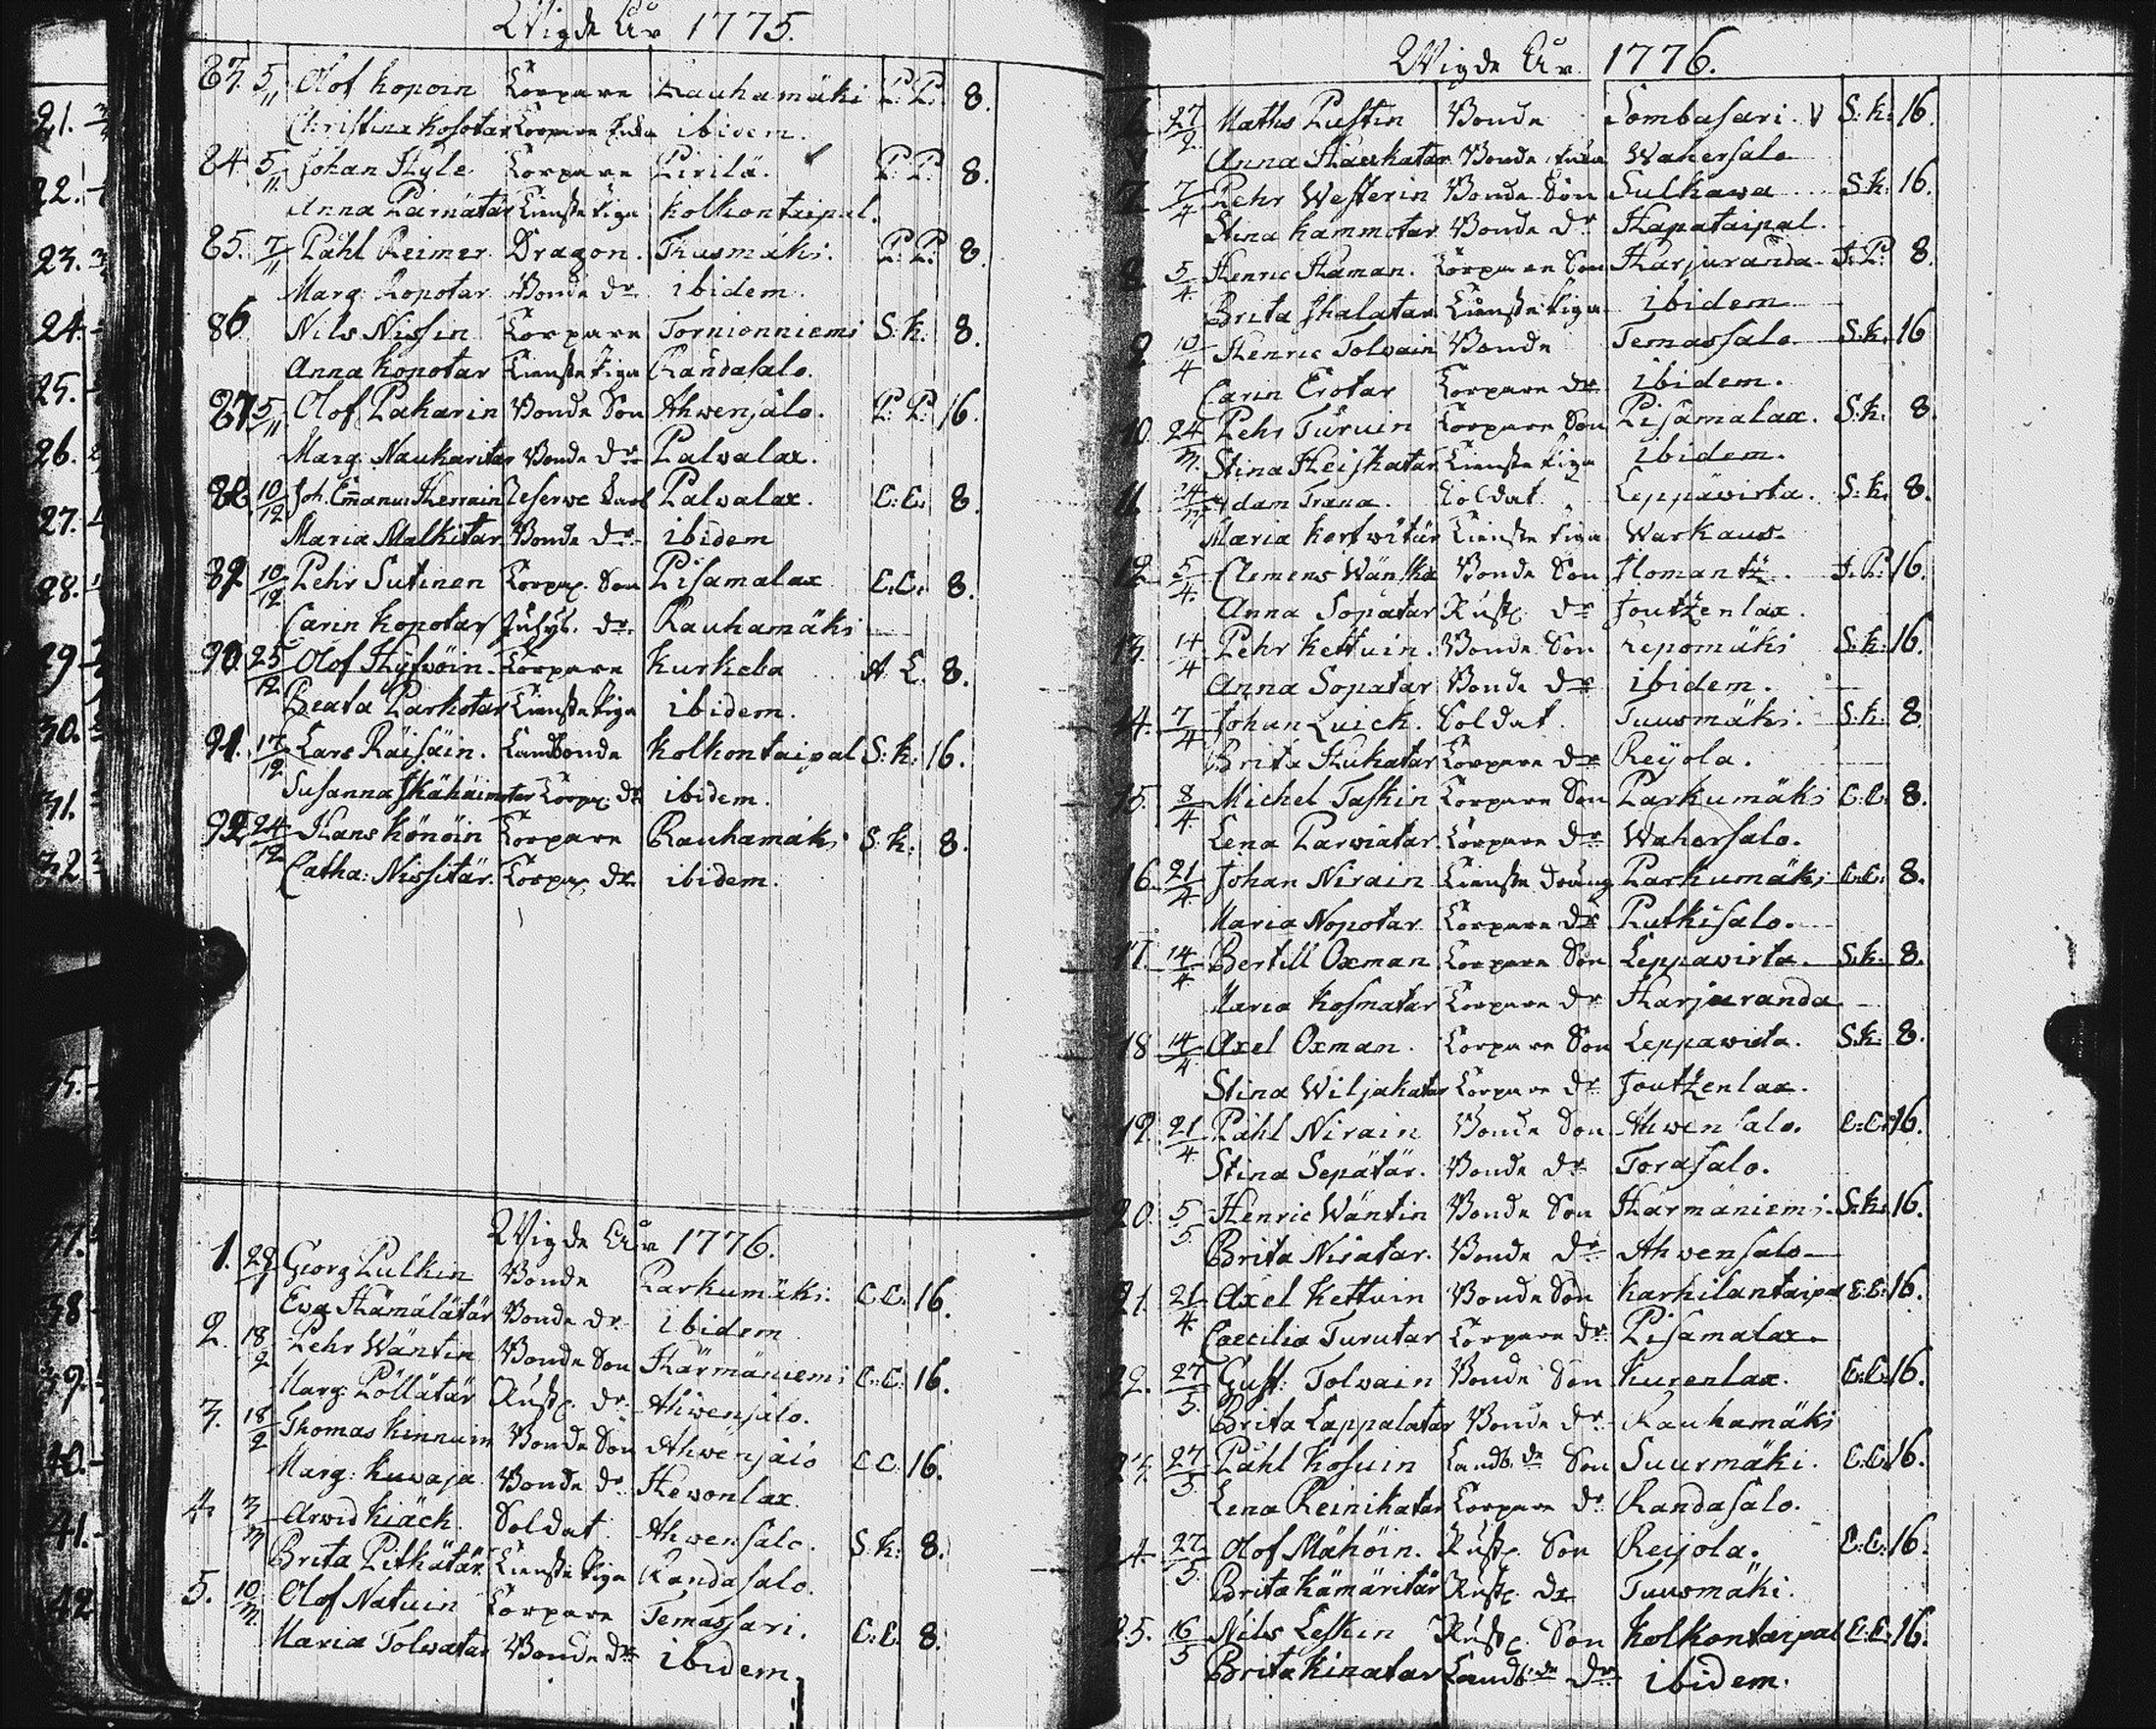 Wigde År 1775.
83. 5/11 Olof Kopoin Torpare Rauhamäki P. P. 8.
Christina Kosotar Torpare Enka ibidem.
84 5/11 Johan Hyle Torpare Pirilä. P. P. 8.
Anna Parnätär Tienste Piga Kolkontaipal.
85. 7/11 Påhl Reimer Dragon. Tuusmäki. P. P. 8.
Marg: Kopotar Bonde dr ibidem.
86 Nils Nissin Torpare Tornionniemi S. K. 8.
Anna Kopotar Tienste Piga Randasalo.
87 5/11 Olof Pakarin Bonde Son Ahwensalo. P. P. 16.
Marg: Naukaritar Bonde dr Palvalax.
88. 10/12 Joh. Emanu: Herrain Reserve Karl Palvalax. C. C. 8.
Maria Malkitar Bonde dr ibidem
89 10/12 Pehr Sutinen Torp. Son Pisamalax C. C. 8.
Carin Kopotar Inhys. dr. Rauhamäki
90. 25/12 Olof Hyfwöin. Torpare Kurkeba A L. 8.
Beata Parkotar Tienste Piga ibidem.
91. 17/12 Lars Räisäin. Landbonde Kolkontaipal S. K. 16.
Susanna Ikähäimotar Torp. dr ibidem.
92. 24/12 Hans Könöin Torpare Rauhamäki S. K. 8.
Catha: Nissitär. Torp. dr ibidem.
Wigde År 1776.
1. Georg Pulkin Bonde Parkumäki. C C. 16.
Eva Hämälätär Bonde dr ibidem
2. 18/2 Pehr Wäntin Bonde Son Härmäniemi C. C. 16.
Marg: Pöllätär Rust. dr. Ahwensalo.
3. 18/2 Thomas Kinnuin Bonde Son Ahwensalo C C. 16.
Marg: Kuwaja Bonde dr Hewonlax.
4. 3/3 Arwid Kiäck. Soldat Ahwensalo. S. K. 8.
Brita Pitkätär Tienste Piga Randasalo.
5. 10/3 Olof Natuin Torpare Temassari. C. C. 8.
Maria Tolvatar Bonde dr ibidem.
Wigde År 1776.
6. 27/2 Maths Pustin Bonde Sombasari. V S. K. 16.
Anna Haukatar Bonde Enka Wahersalo
7. 7/4 Pehr Westerin Bonde Son Sulkawa S. K. 16.
Stina Kammotar Bonde dr Hapataipal.
8. 5/4 Henric Haman. Torparen Son Harjuranda J. P. 8.
Brita Ihalatar Tienste Piga ibidem
9 10/4 Henric Tolvain Bonde Temassalo. S. K. 16
Carin Erotar Torpare dr ibidem.
10. 24/3 Pehr Turuin Torpare Son Pisamalax. S. K. 8.
Stina Heiskatar Tienste Piga ibidem.
11. 24/3 Adam Trana. Soldat Leppävirta. S. K. 8.
Maria Kortwitär Tienste Piga Warkaus.
12. 5/4 Clemens Wänskä Bonde Son Ilomantz. J. P. 16.
Anna Sopatar Rust. dr Joutzenlax.
13. 14/4 Pehr Kettuin. Bonde Son repomäki S. K. 16.
Anna Sopatar Bonde dr ibidem.
14. 7/4 Johan Quick. Soldat. Tuusmäki. S. K. 8
Brita Hukatar Torpare dr Reijola.
15. 8/4 Michel Taskin Torpare Son Parkumäki C. C. 8.
Lena Parviatar. Torpare dr Wahersalo.
16. 21/4 Johan Nirain Tienste dräng Parkumäki C. C. 8.
Maria Nopotar Torpare dr Putkisalo.
17. 14/4 Bertill Oxman Torpare Son Leppavirta. S. K. 8.
Maria Kosmatar Torpare dr Harjuranda
18 14/4 Axel Oxman. Torpare Son Leppavirta. S. K. 8.
Stina Wiljakatar Torpare dr Joutzenlax.
19. 21/4 Påhl Nirain Bonde Son Ahwensalo. C. C. 16.
Stina Sepätär. Bonde dr Torasalo.
20. 5/5 Henric Wäntin Bonde Son Härmäniemi. S. K. 16.
Brita Niratar. Bonde dr Ahwensalo
21. 21/4 Axel Kettuin Bonde Son Karhilantaipal C. C. 16.
Caecilia Turutar Torpare dr Pisamalax.
22. 27/5 Gust: Tolvain Bonde Son Kurenlax. C. C. 16.
Brita Lappalatar Bonde dr Rauhamäki
23. 27/5 Påhl Kosuin Landb.de Son Suurmäki. C. C. 16.
Lena Reinikatar Torpare dr Randasalo.
24. 27/5 Olof Mähöin. Rust. Son Reijola. C. C. 16.
Brita Kämäritär Rust. dr Tuusmäki.
25. 16/5 Nils Leskin Rust. Son Kolkontaipal C. C. 16.
Brita Kinatar Landb.de dr ibidem.
21.
22.
23.
24.
25.
26.
27.
28.
29
30.
31.
32
35.
37.
38
39.
40.
41.
42